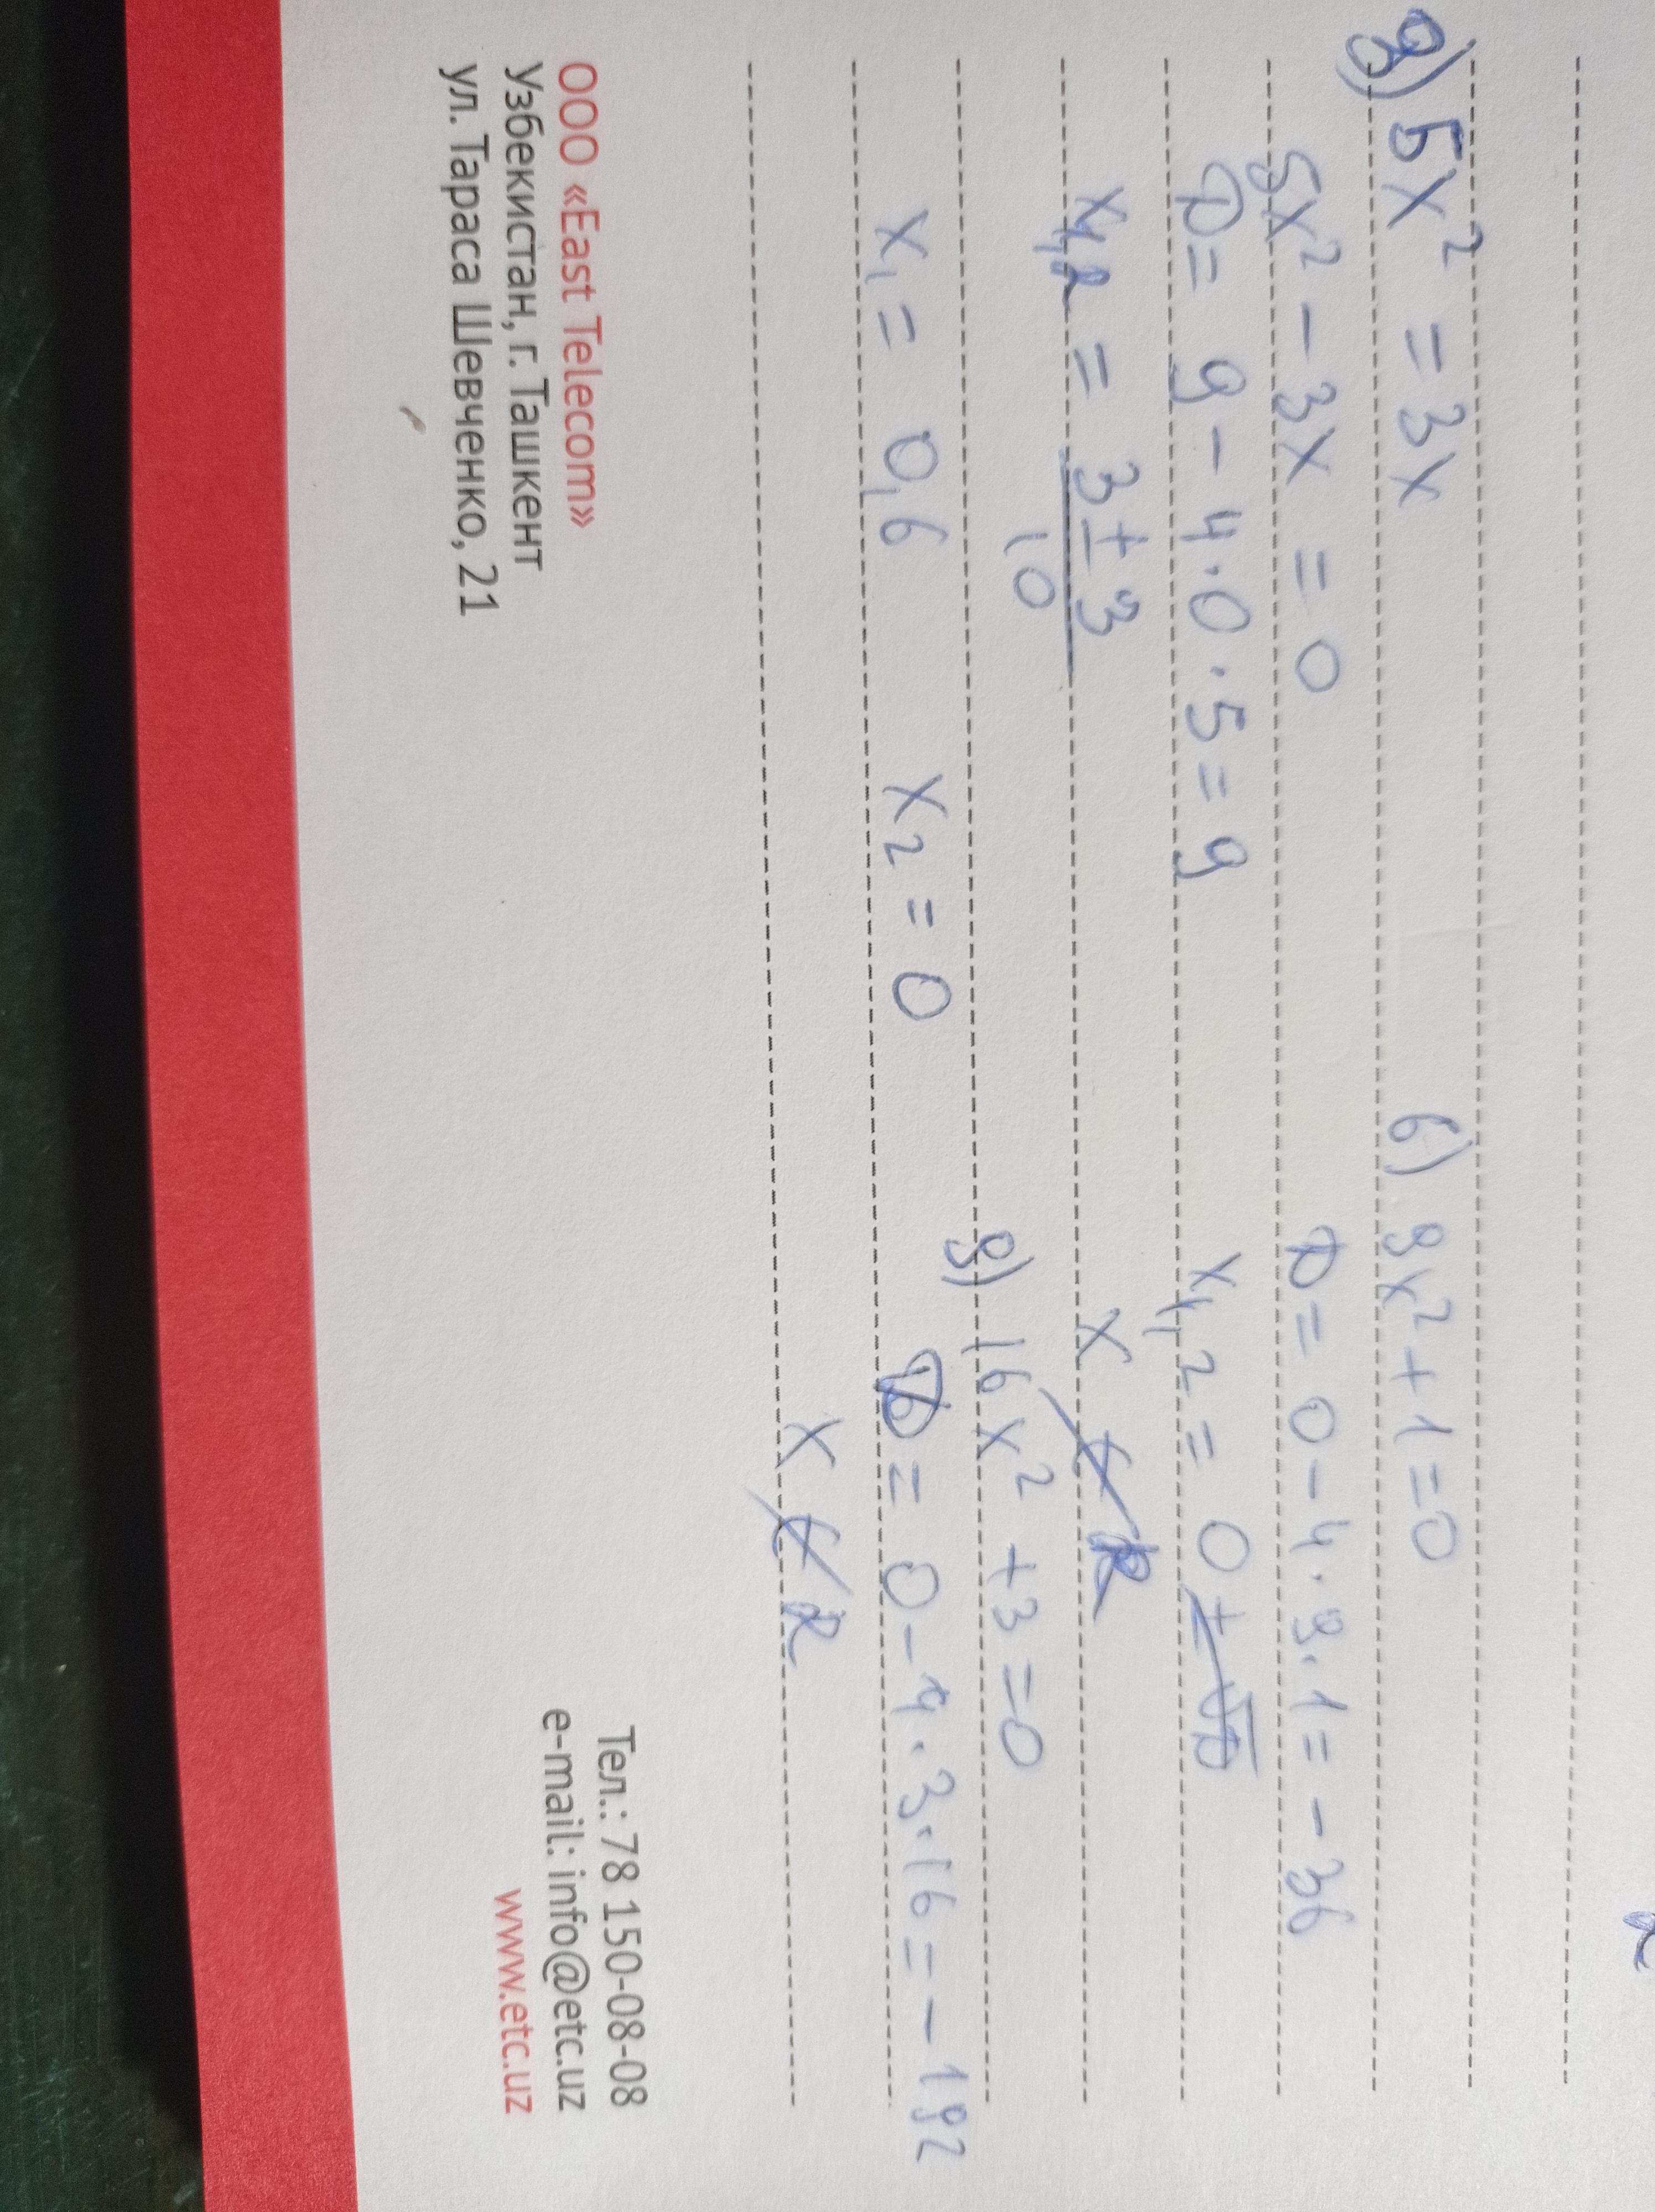 g) 5x² = 3x
5x² - 3x = 0
D = 9 - 4·0·5 = 9
x₁,₂ = 3 ± 3
10
x₁ = 0,6 x₂ = 0
б) 9x² + 1 = 0
D = 0 - 4·9·1 = -36
x₁,₂ = 0
x ∉ R
g) 16x² + 3 = 0
D = 0 - 4·3·16 = -192
x ∉ R
ООО «East Telecom»
Узбекистан, г. Ташкент
ул. Тараса Шевченко, 21
Тел.: 78 150-08-08
e-mail: info@etc.uz
www.etc.uz